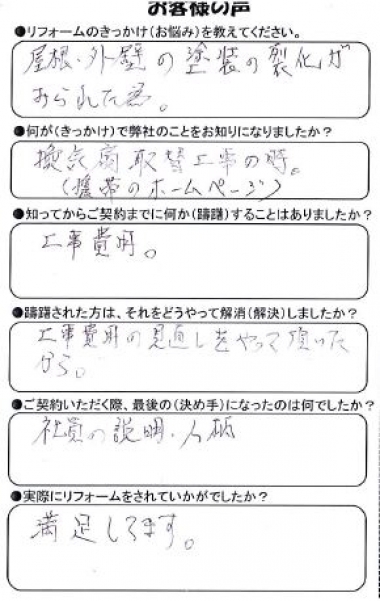 お客様の声
●リフォームのきっかけ(お悩み)を教えてください。
屋根・外壁の塗装の裂化が
みられた為。
●何が(きっかけ)で弊社のことをお知りになりましたか?
換気扇取替工事の時。
(携帯のホームページ)
●知ってからご契約までに何か(躊躇)することはありましたか?
工事費用。
●躊躇された方は、それをどうやって解消(解決)しましたか?
工事費用の見直しをやって頂いた
から。
●ご契約いただく際、最後の(決め手)になったのは何でしたか?
社員の説明・人柄
●実際にリフォームをされていかがでしたか?
満足してます。